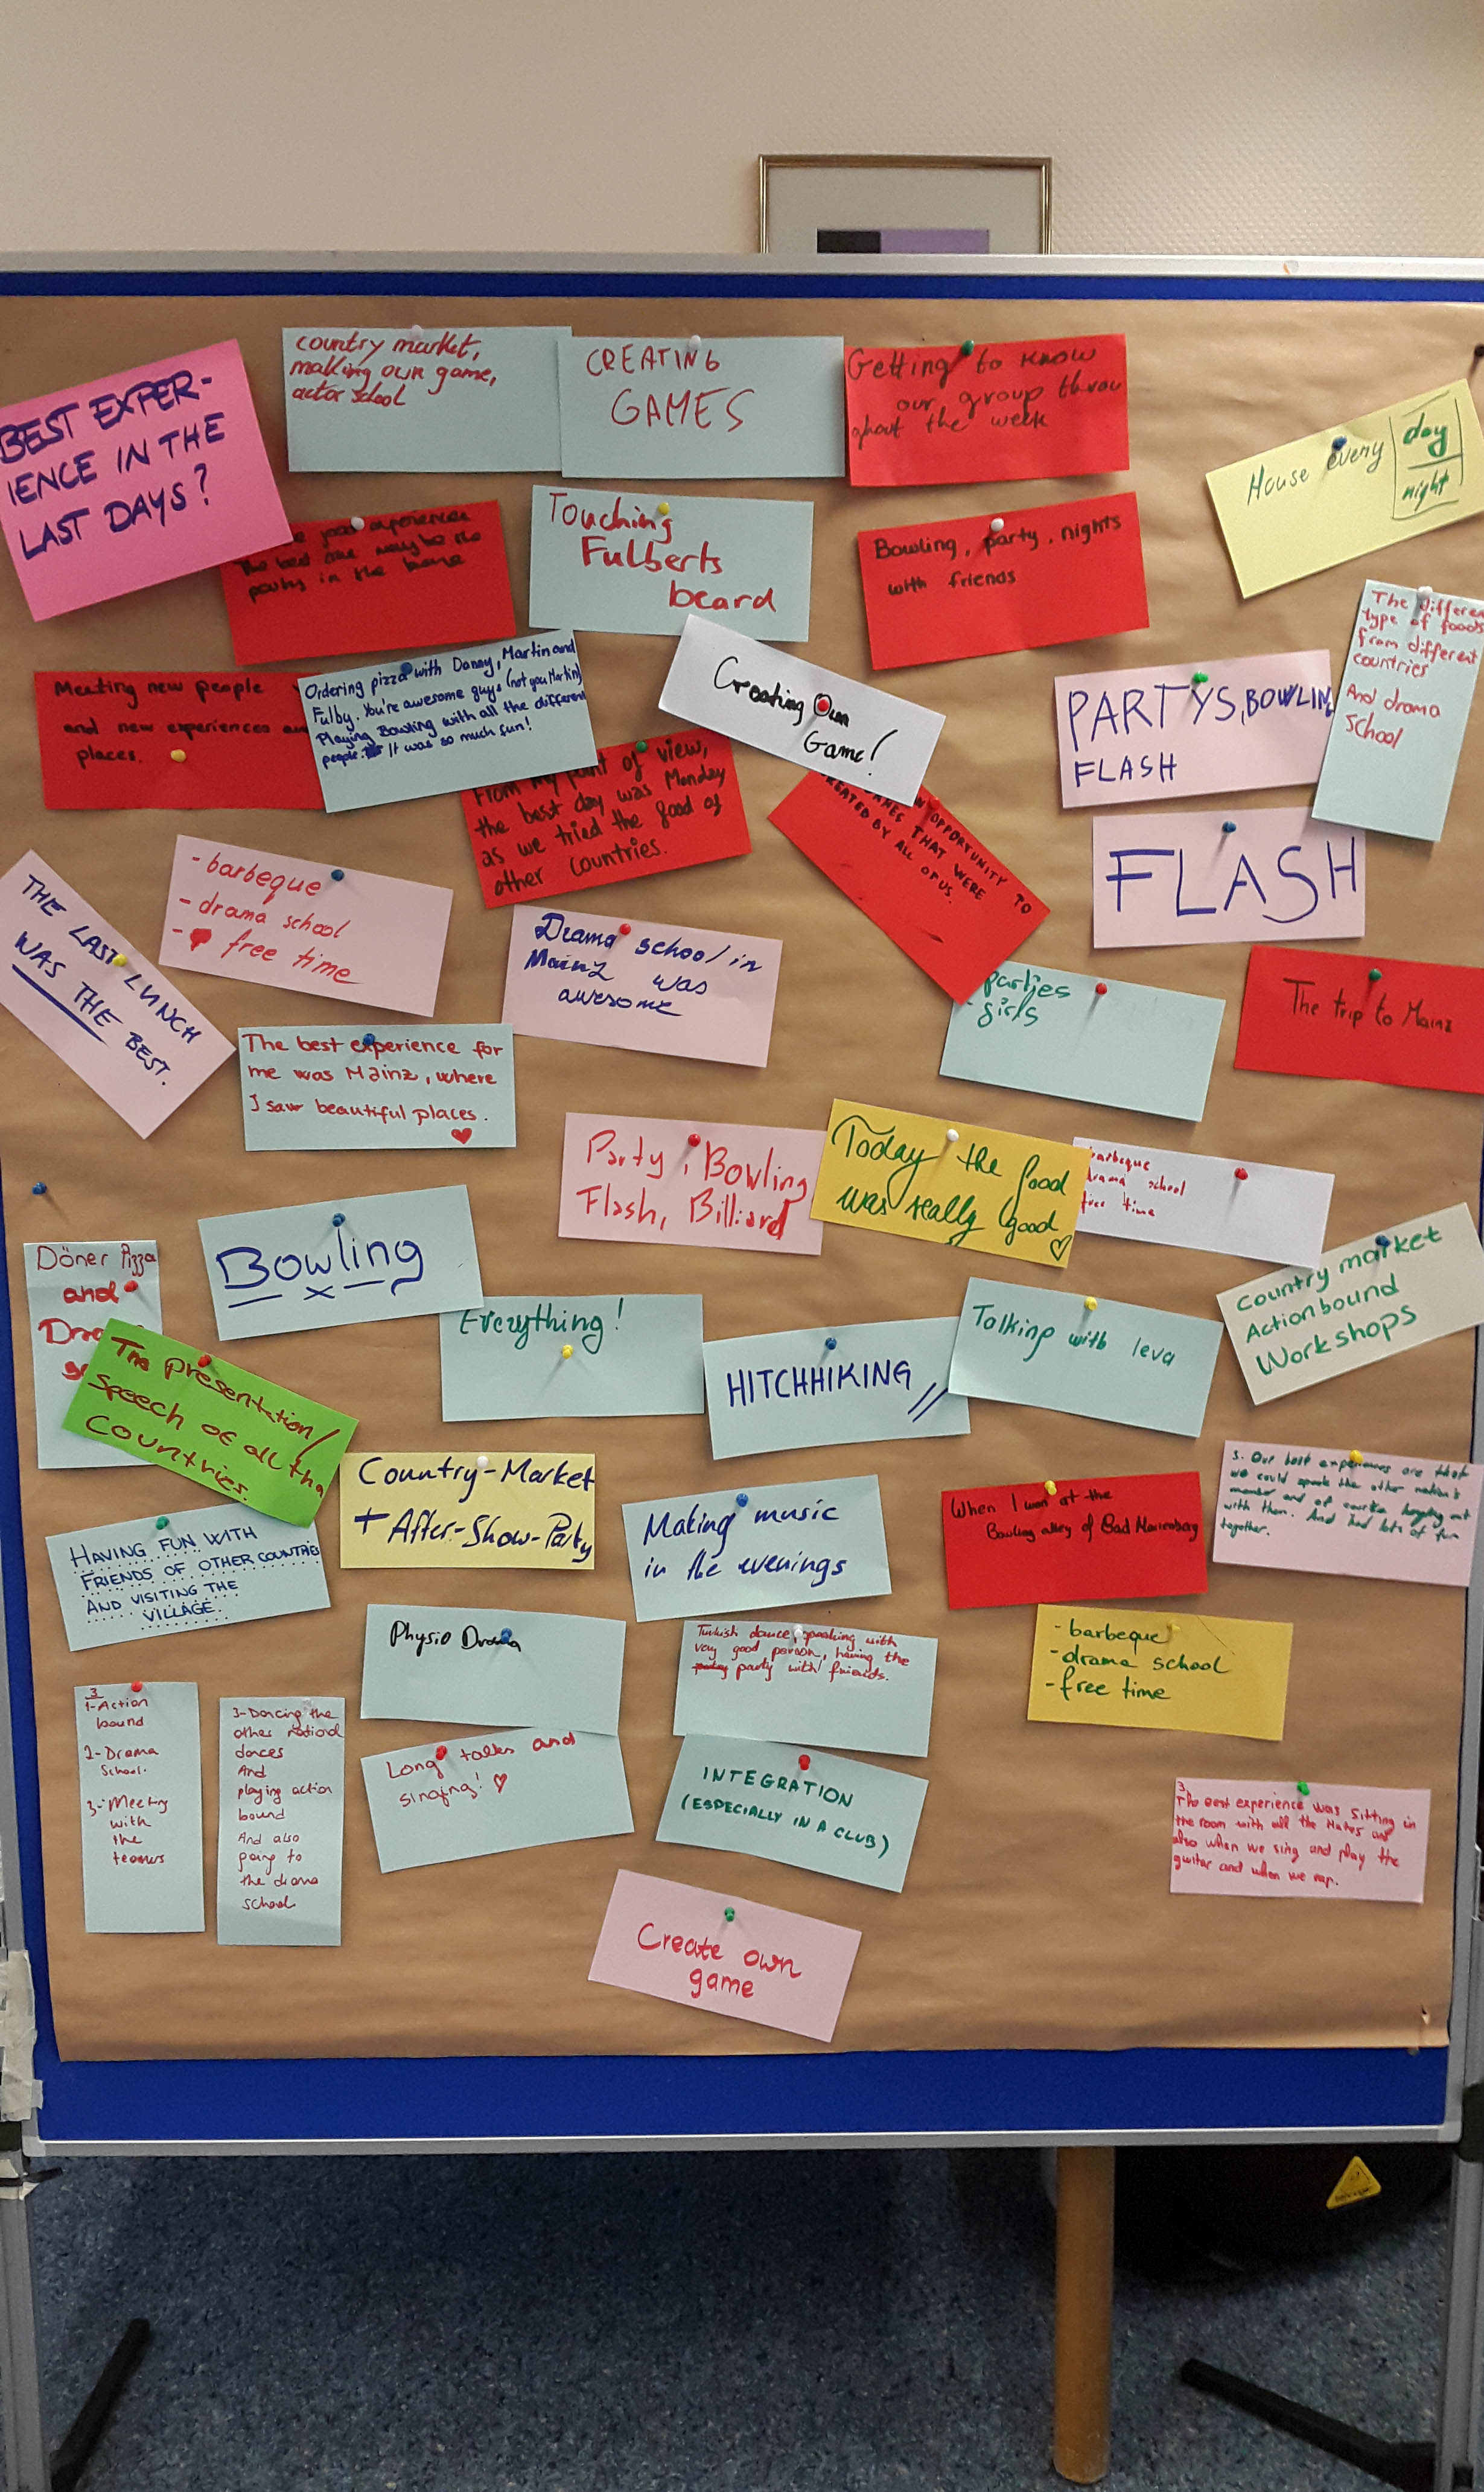 BEST EXPER-
IENCE IN THE
LAST DAYS?
country market,
making own game,
actor school
CREATING
GAMES
Getting to know
our group throu
ghout the week
House every day
night
good experiences
the best one maybe the
party in the
Touching
Fulberts
beard
Bowling, party, nights
with friends
The different
type of foods
from different
countries
And drama
school
Meeting new people
and new experiences an
places.
Ordering pizza with Danny, Martin and
Fulby. You're awesome guys (not you Martin)
Playing Bowling with all the different
people. It was so much fun!
Creating Own
Game!
PARTYS, BOWLING
FLASH
From my point of view,
the best day was Monday
as we tried the food of
other countries.
OPPORTUNITY TO
GAMES THAT WERE
CREATED BY ALL
OF US.
FLASH
THE LAST LUNCH
WAS THE BEST.
- barbeque
- drama school
- free time
Drama school in
Mainz was
awesome
parties
- girls
The trip to Mainz
The best experience for
me was Mainz, where
I saw beautiful places.
Party, Bowling
Flash, Billiard
Today the food
was really good
barbeque
drama school
free time
Döner Pizza
and
Bowling
Everything!
HITCHHIKING
Talking with Ieva
Country market
Actionbound
Workshops
The presentation/
speech of all the
Countries.
Country-Market
+ After-Show-Party
Making music
in the evenings
When I won at the
Bowling alley of Bad Marienberg
3. Our best experiences are that
we could speak the other nation's
member and of course hanging out
with them. And had lots of fun
together.
HAVING FUN WITH
FRIENDS OF OTHER COUNTRIES
AND VISITING THE
VILLAGE.
Physio Drama
Turkish dance, speaking with
very good person, having the
party with friends.
- barbeque
- drama school
- free time
3
1-Action
bound
2-Drama
School.
3-Meeting
with
the
teams
3-Dancing the
other national
dances
And
playing action
bound
And also
going to
the drama
school
Long talks and
singing!
INTEGRATION
(ESPECIALLY IN A CLUB)
3.
The best experience was sitting in
the room with all the Mates and
also when we sing and play the
guitar and when we rap.
Create own
game